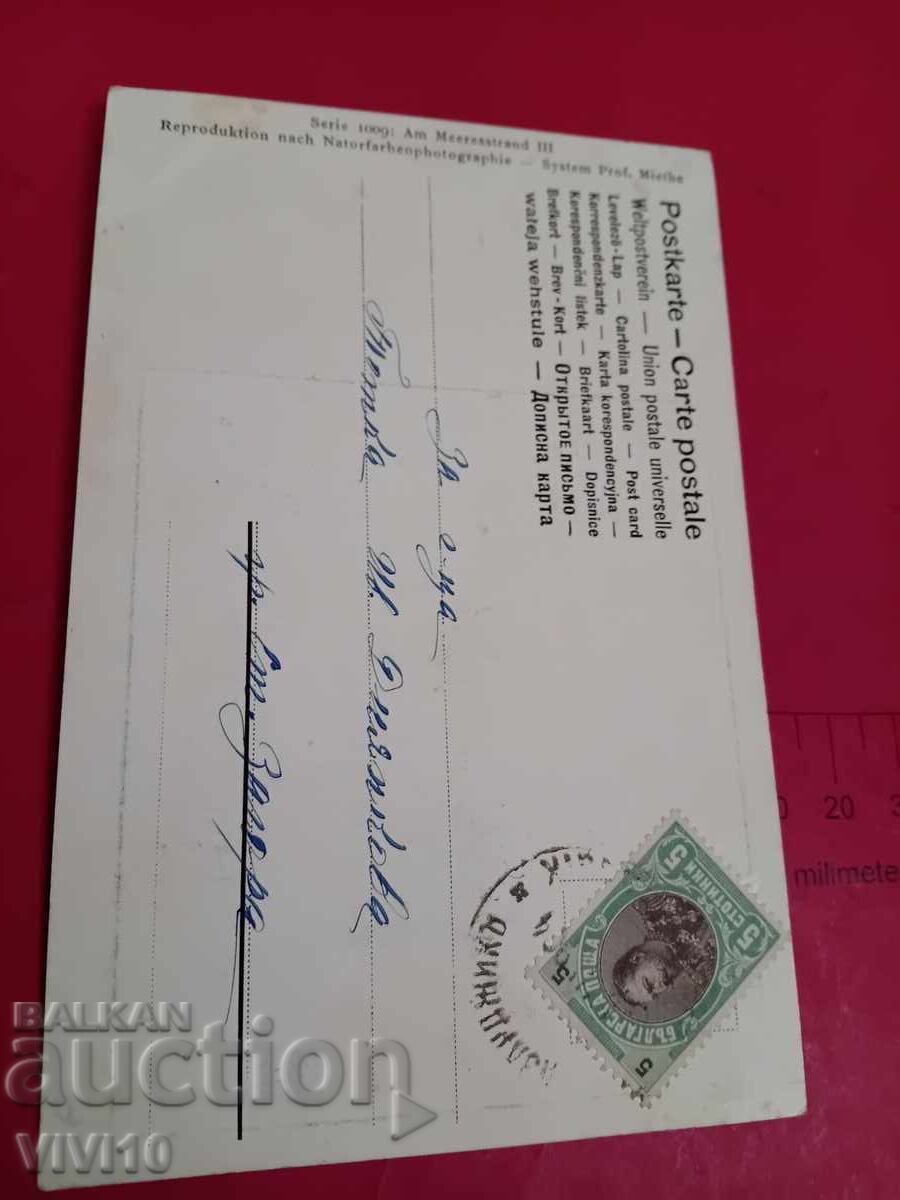 Serie 1009: Am Meeresstrand III
Reproduktion nach Naturfarbenphotographie — System Prof. Miethe
Postkarte — Carte postale
Weltpostverein — Union postale universelle
Levelező-Lap — Cartolina postale — Post card
Korrespondenzkarte — Karta korespondencyjna —
Korespondenčni listek — Briefkaart — Dopisnice
Brefkort — Brev-Kort — Открытое письмо —
wateja wehstule — Дописна карта
За г-ца
Тенка Ив.
гр. Ст. Загора
5 СТОТИНКИ 5
БЪЛГАРСКА ПОЩА
5
5
20
milimete
BALKAN
auction
VIVI10